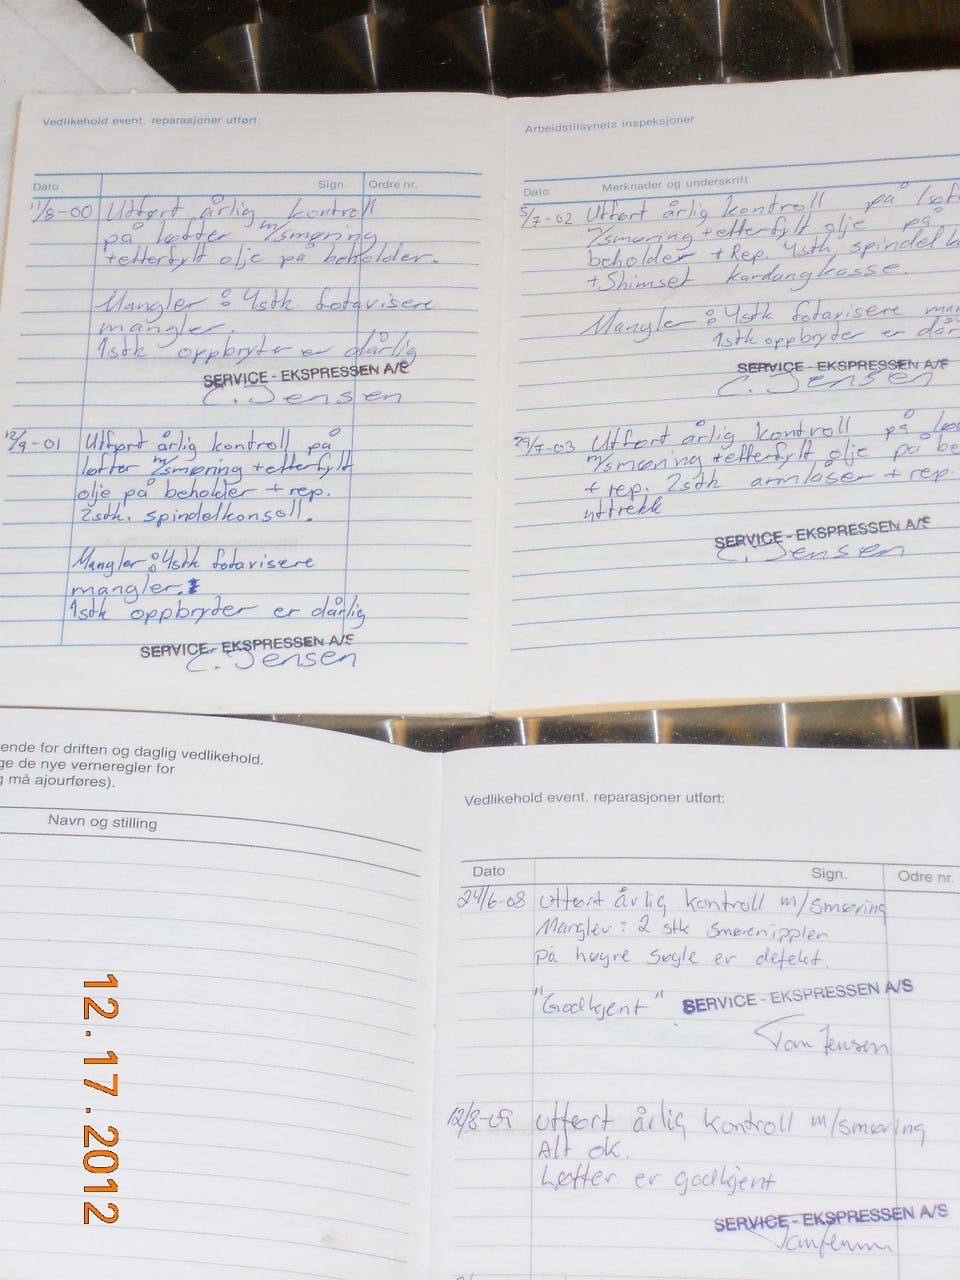 Vedlikehold event. reparasjoner utført:
Dato Sign. Ordre nr.
11/8-00 Utført årlig kontroll
på løfter m/smøring
+etterfylt olje på beholder.
Mangler: 4stk fotavisere
mangler.
1stk oppbryter er dårlig
SERVICE - EKSPRESSEN A/S
C. Jensen
12/9-01 Utført årlig kontroll på
løfter m/smøring +etterfylt
olje på beholder + rep.
2stk. spindelkonsoll.
Mangler: 4stk fotavisere
mangler.
1stk oppbryter er dårlig
SERVICE - EKSPRESSEN A/S
C. Jensen
Arbeidstilsynets inspeksjoner
Dato Merknader og underskrift
5/7-02 Utført årlig kontroll på
m/smøring +etterfylt olje på
beholder +Rep. 4stk
+Shimset kardangkasse.
Mangler: 4stk fotavisere
1stk oppbryter er
SERVICE - EKSPRESSEN A/S
C. Jensen
29/7-03 Utført årlig kontroll på
m/smøring +etterfylt olje på
+ rep. 2stk armlåser + rep.
uttrekk
SERVICE - EKSPRESSEN A/S
C. Jensen
ende for driften og daglig vedlikehold.
ge de nye verneregler for
g må ajourføres).
Navn og stilling
Vedlikehold event. reparasjoner utført:
Dato Sign. Odre nr.
24/6-08 Utført årlig kontroll m/smøring
Mangler: 2 stk smørenipplen
på høyre søyle er defekt.
"Godkjent" SERVICE - EKSPRESSEN A/S
Tom Jensen
12/8-09 Utført årlig kontroll m/smøring
Alt ok.
Løfter er godkjent
SERVICE - EKSPRESSEN A/S
Tom Jensen
12.17.2012